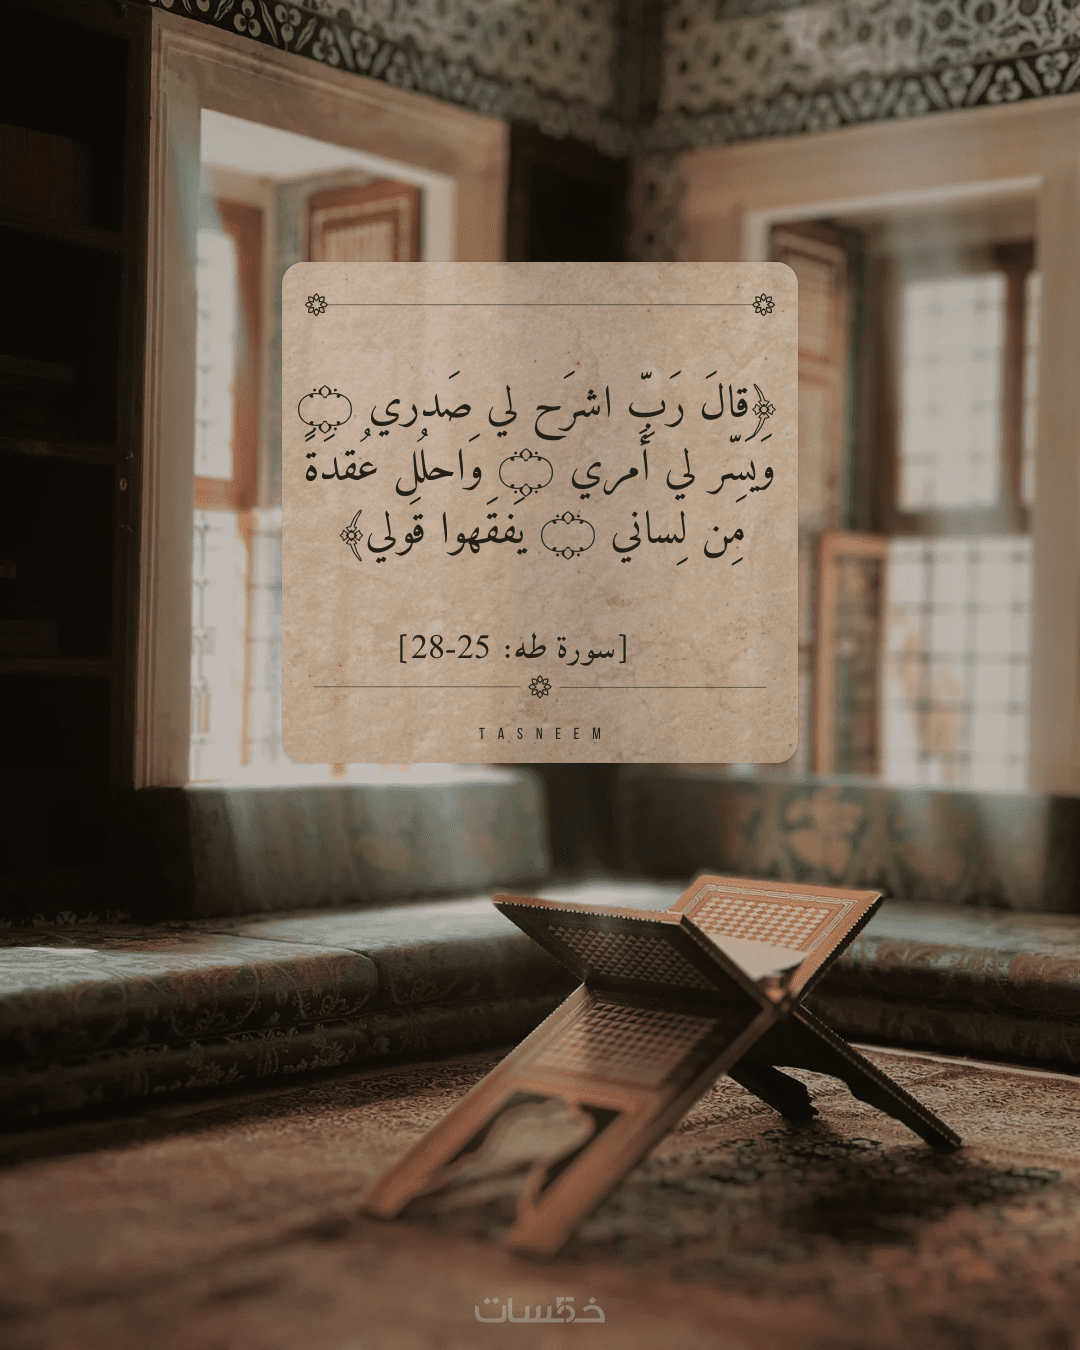 ﴿قالَ رَبِّ اشرَح لي صَدري ۝
وَيَسِّر لي أَمري ۝ وَاحلُل عُقدَةً
مِن لِساني ۝ يَفقَهوا قَولي﴾
[سورة طه: 25-28]
TASNEEM
خمسات